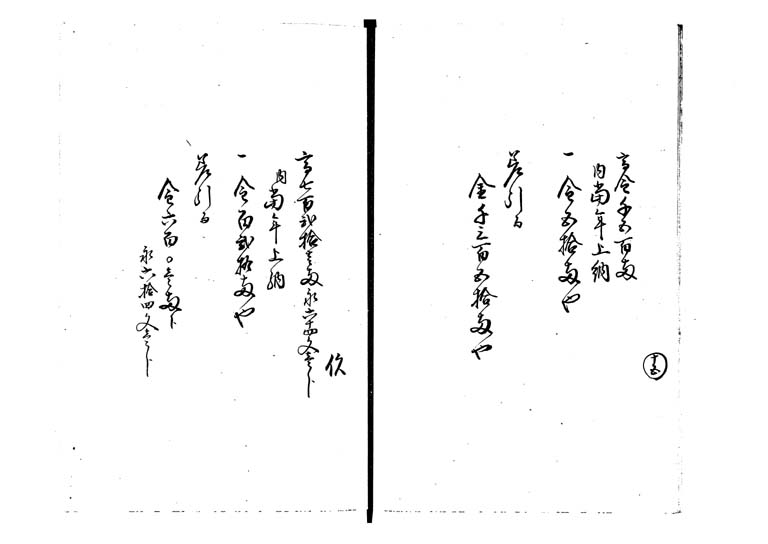 高金千四百両
内當年上納
一 金五拾両也
差引而
金千三百五拾両也
十五
高七百弐拾壱両永六拾四文壱分
内當年上納
一 金百弐拾両也
差引而
金六百〇壱両ト
永六拾四文壱分